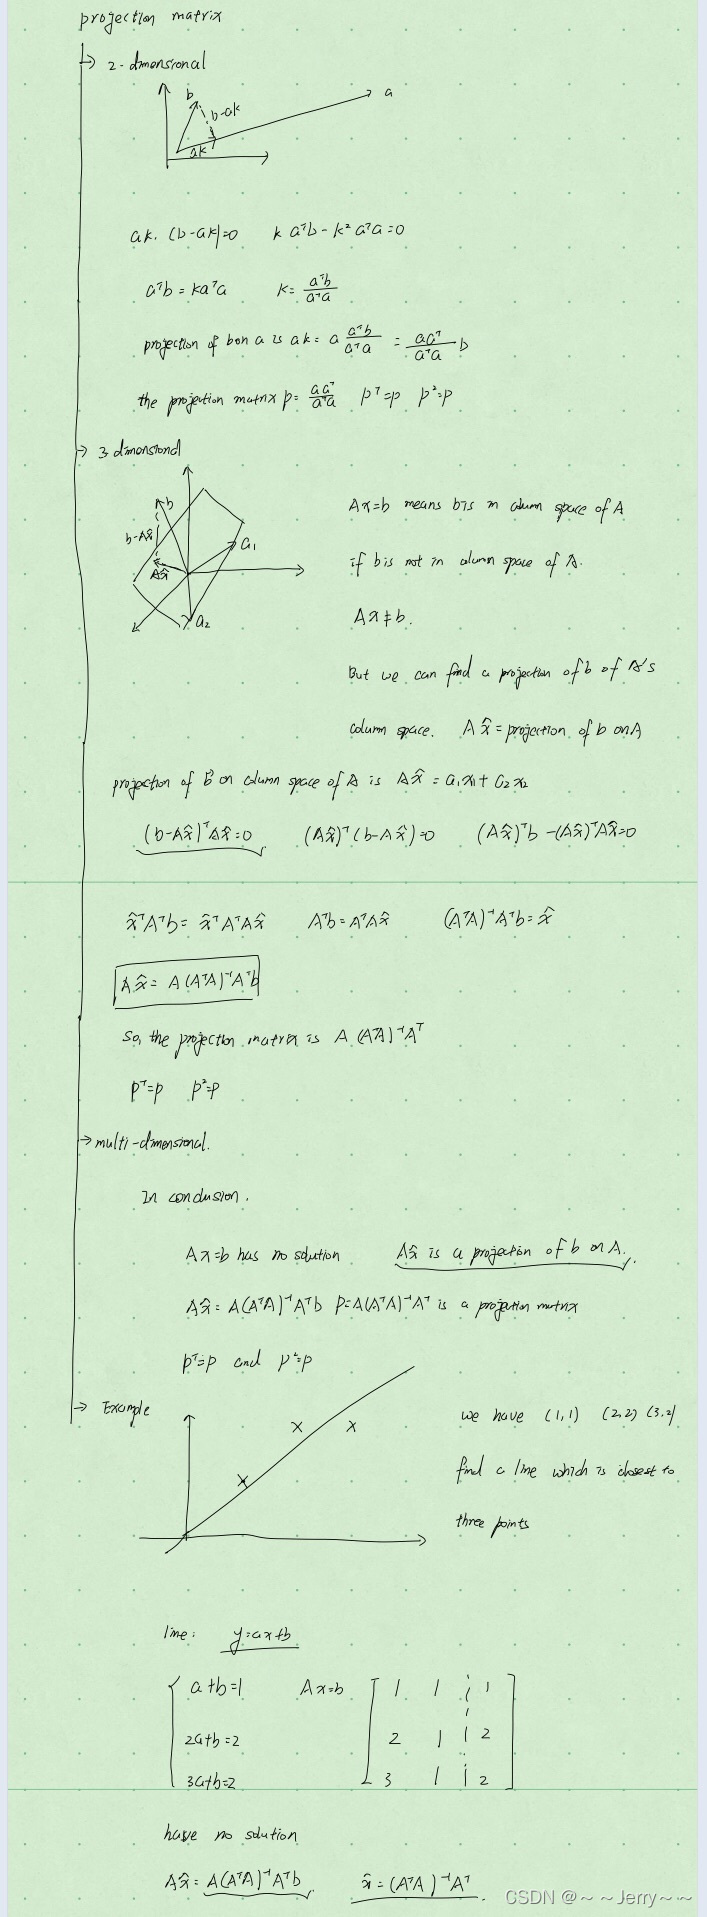 projection matrix
→ 2-dimensional
b
b-ak
a
ak
ak·(b-ak)=0    k aᵀb - k² aᵀa=0
aᵀb = kaᵀa    k = aᵀb/aᵀa
projection of b on a is ak = a aᵀb/aᵀa = aaᵀ/aᵀa b
the projection matrix p = aaᵀ/aᵀa    pᵀ=p    p²=p
→ 3 dimensional
b
b-Ax̂
Ax̂
a₁
a₂
Ax=b means b is in column space of A
if b is not in column space of A.
Ax≠b.
But we can find a projection of b of A's
column space. Ax̂ = projection of b on A
projection of b⃗ on column space of A is Ax̂ = a₁x₁ + a₂x₂
(b-Ax̂)ᵀAx̂=0    (Ax̂)ᵀ(b-Ax̂)=0    (Ax̂)ᵀb -(Ax̂)ᵀAx̂=0
x̂ᵀAᵀb = x̂ᵀAᵀAx̂    Aᵀb = AᵀAx̂    (AᵀA)⁻¹Aᵀb = x̂
Ax̂ = A(AᵀA)⁻¹Aᵀb
So, the projection matrix is A(AᵀA)⁻¹Aᵀ
pᵀ=p    p²=p
→ multi-dimensional.
In conclusion.
Ax=b has no solution    Ax̂ is a projection of b on A.
Ax̂ = A(AᵀA)⁻¹Aᵀb    p=A(AᵀA)⁻¹Aᵀ is a projection matrix
pᵀ=p and p²=p
→ Example
we have (1,1) (2,2) (3,2)
find a line which is closest to
three points
line: y=ax+b
a+b=1    Ax=b    1 1 1
2a+b=2    2 1 2
3a+b=2    3 1 2
have no solution
Ax̂ = A(AᵀA)⁻¹Aᵀb.    x̂ = (AᵀA)⁻¹Aᵀ.
CSDN @~~Jerry~~